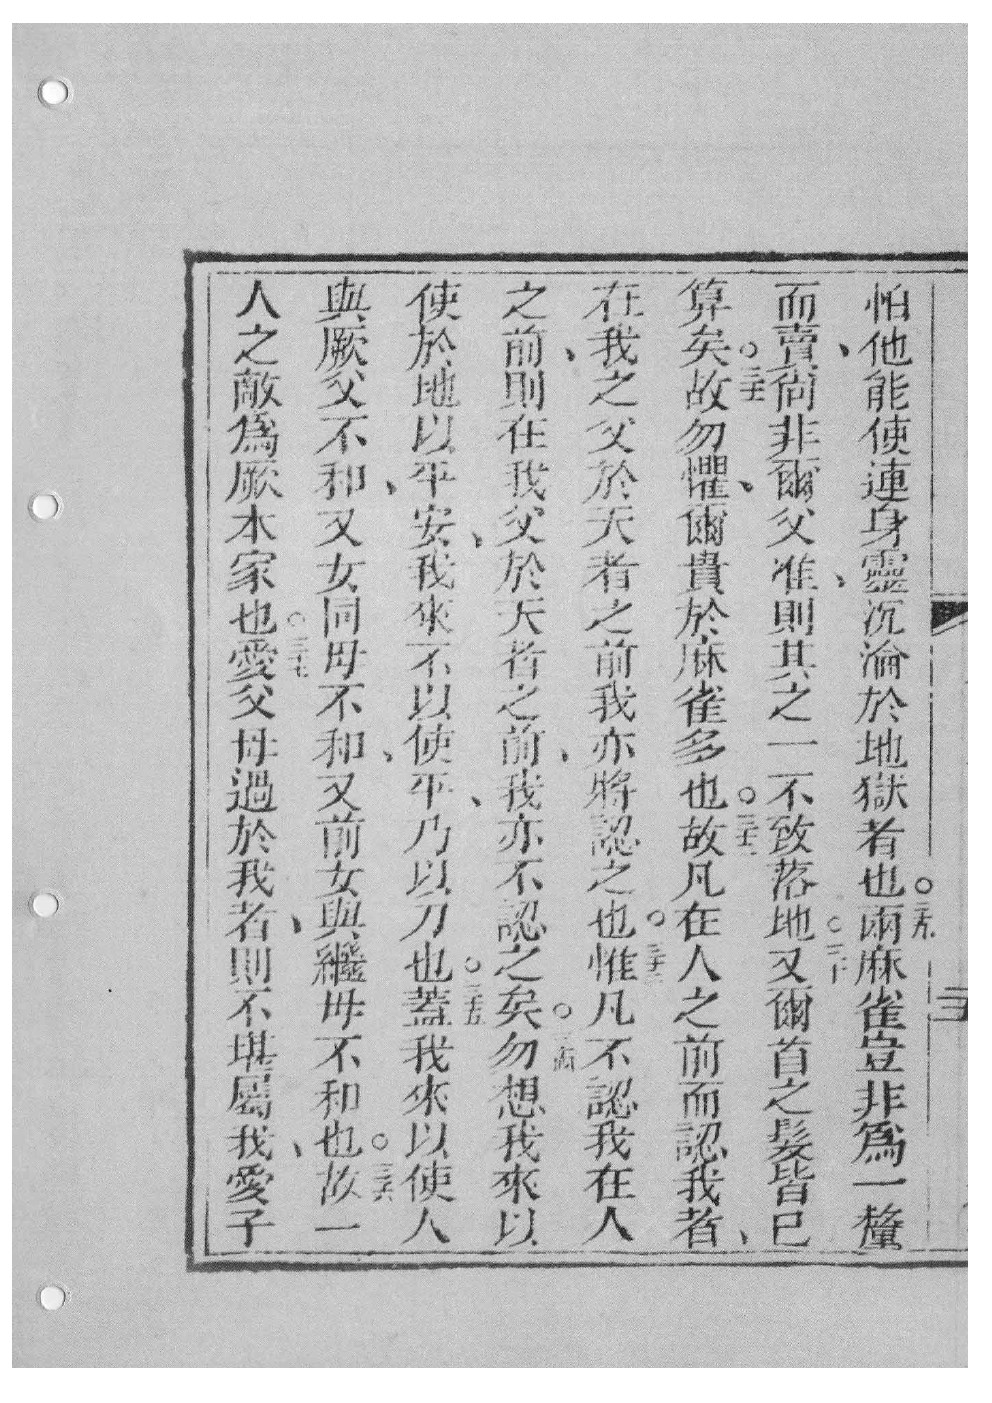 怕他能使連身靈沉淪於地獄者也。二九兩麻雀豈非爲一釐
而賣、尙非爾父准、則其之一不致落地。三十又爾首之髮皆已
算矣。三十一故勿懼、爾貴於麻雀多也。三十二故凡在人之前而認我者、
在我之父於天者之前我亦將認之也。三十三惟凡不認我在人
之前、則在我父於天者之前、我亦不認之矣。三十四勿想我來以
使於地以平安、我來不以使平、乃以刀也。三十五蓋我來以使人
與厥父不和、又女同母不和、又前女與繼母不和也。三十六故一
人之敵爲厥本家也。三十七愛父母過於我者、則不堪屬我、愛子